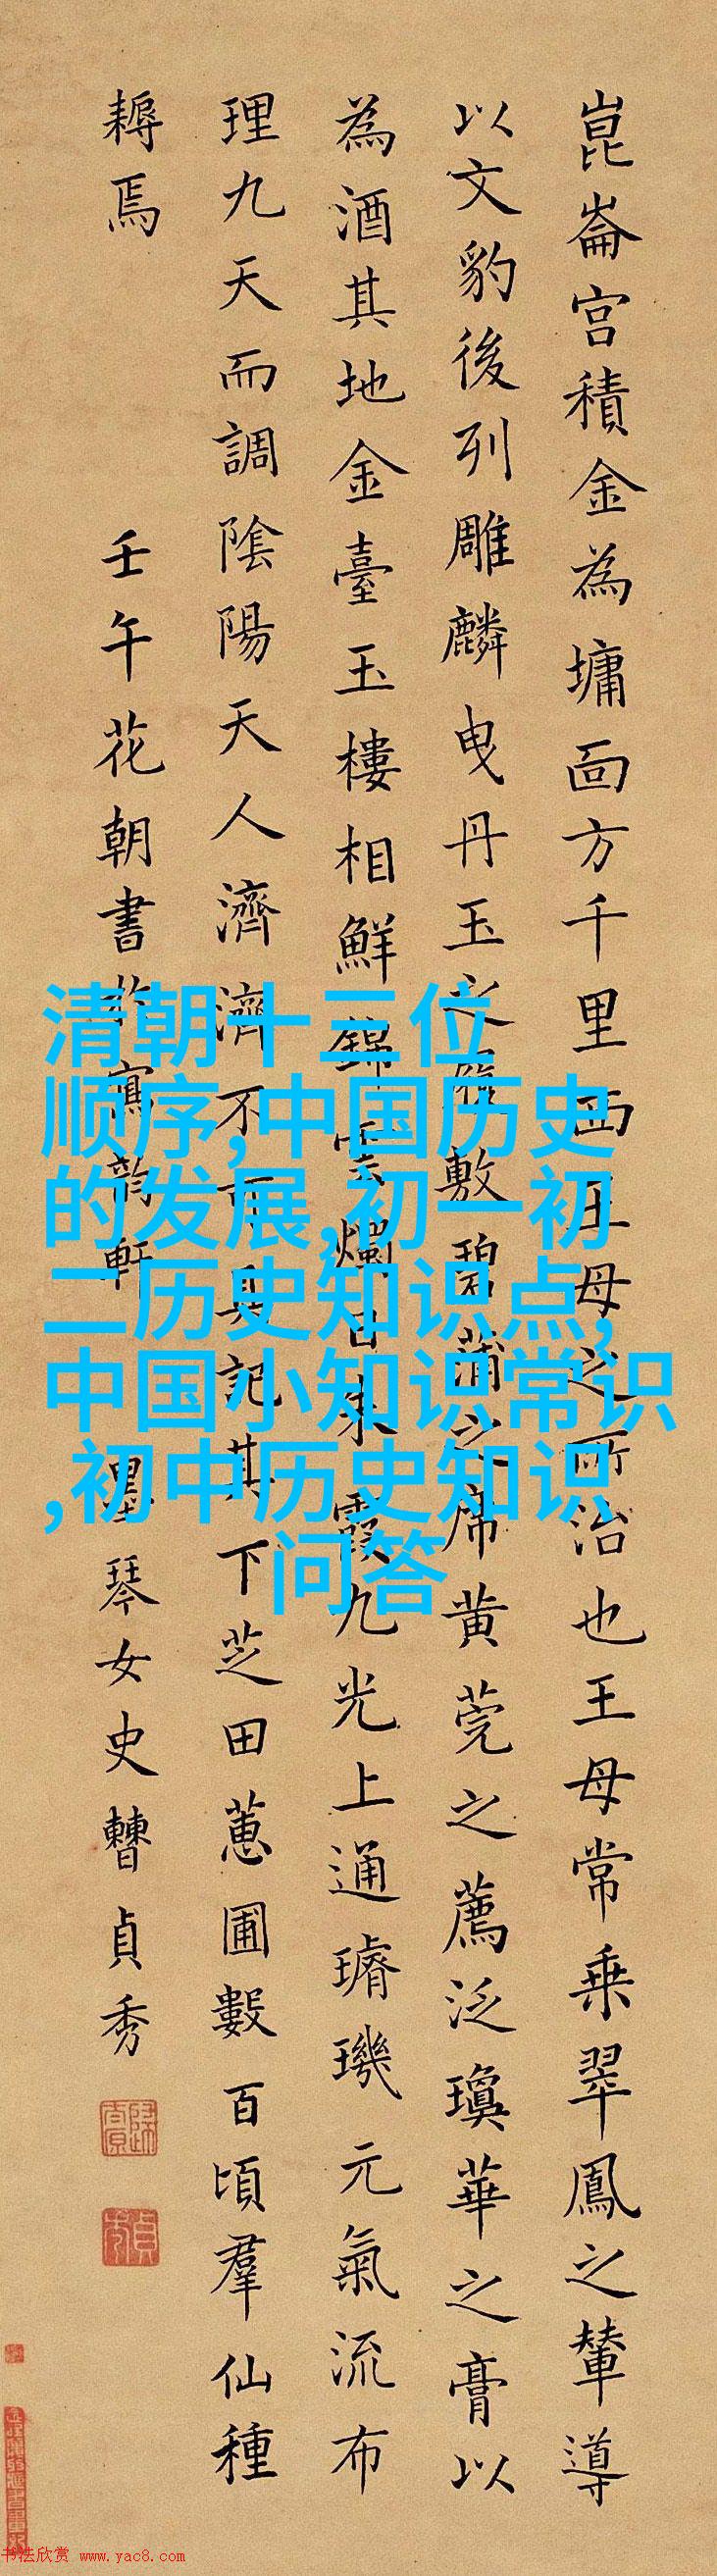 崑崙宮積金為墉面方千里西王母之所治也王母常乗翠鳳之輦導
以文豹後列雕麟曳丹玉之履敷碧蒲之席黄莞之薦泛瓊華之膏以
為酒其地金臺玉樓相鮮錦雲爛日朱霞九光上通璿璣元氣流布
理九天而調隂陽天人濟濟不可具記其下芝田蕙圃數百頃羣仙種
耨焉 壬午花朝書於寫韵軒 墨琴女史曹貞秀
清朝十三位
顺序,中国历史
的发展,初一初
二历史知识点,
中国小知识常识
,初中历史知识
问答
书法欣赏 www.yac8.com